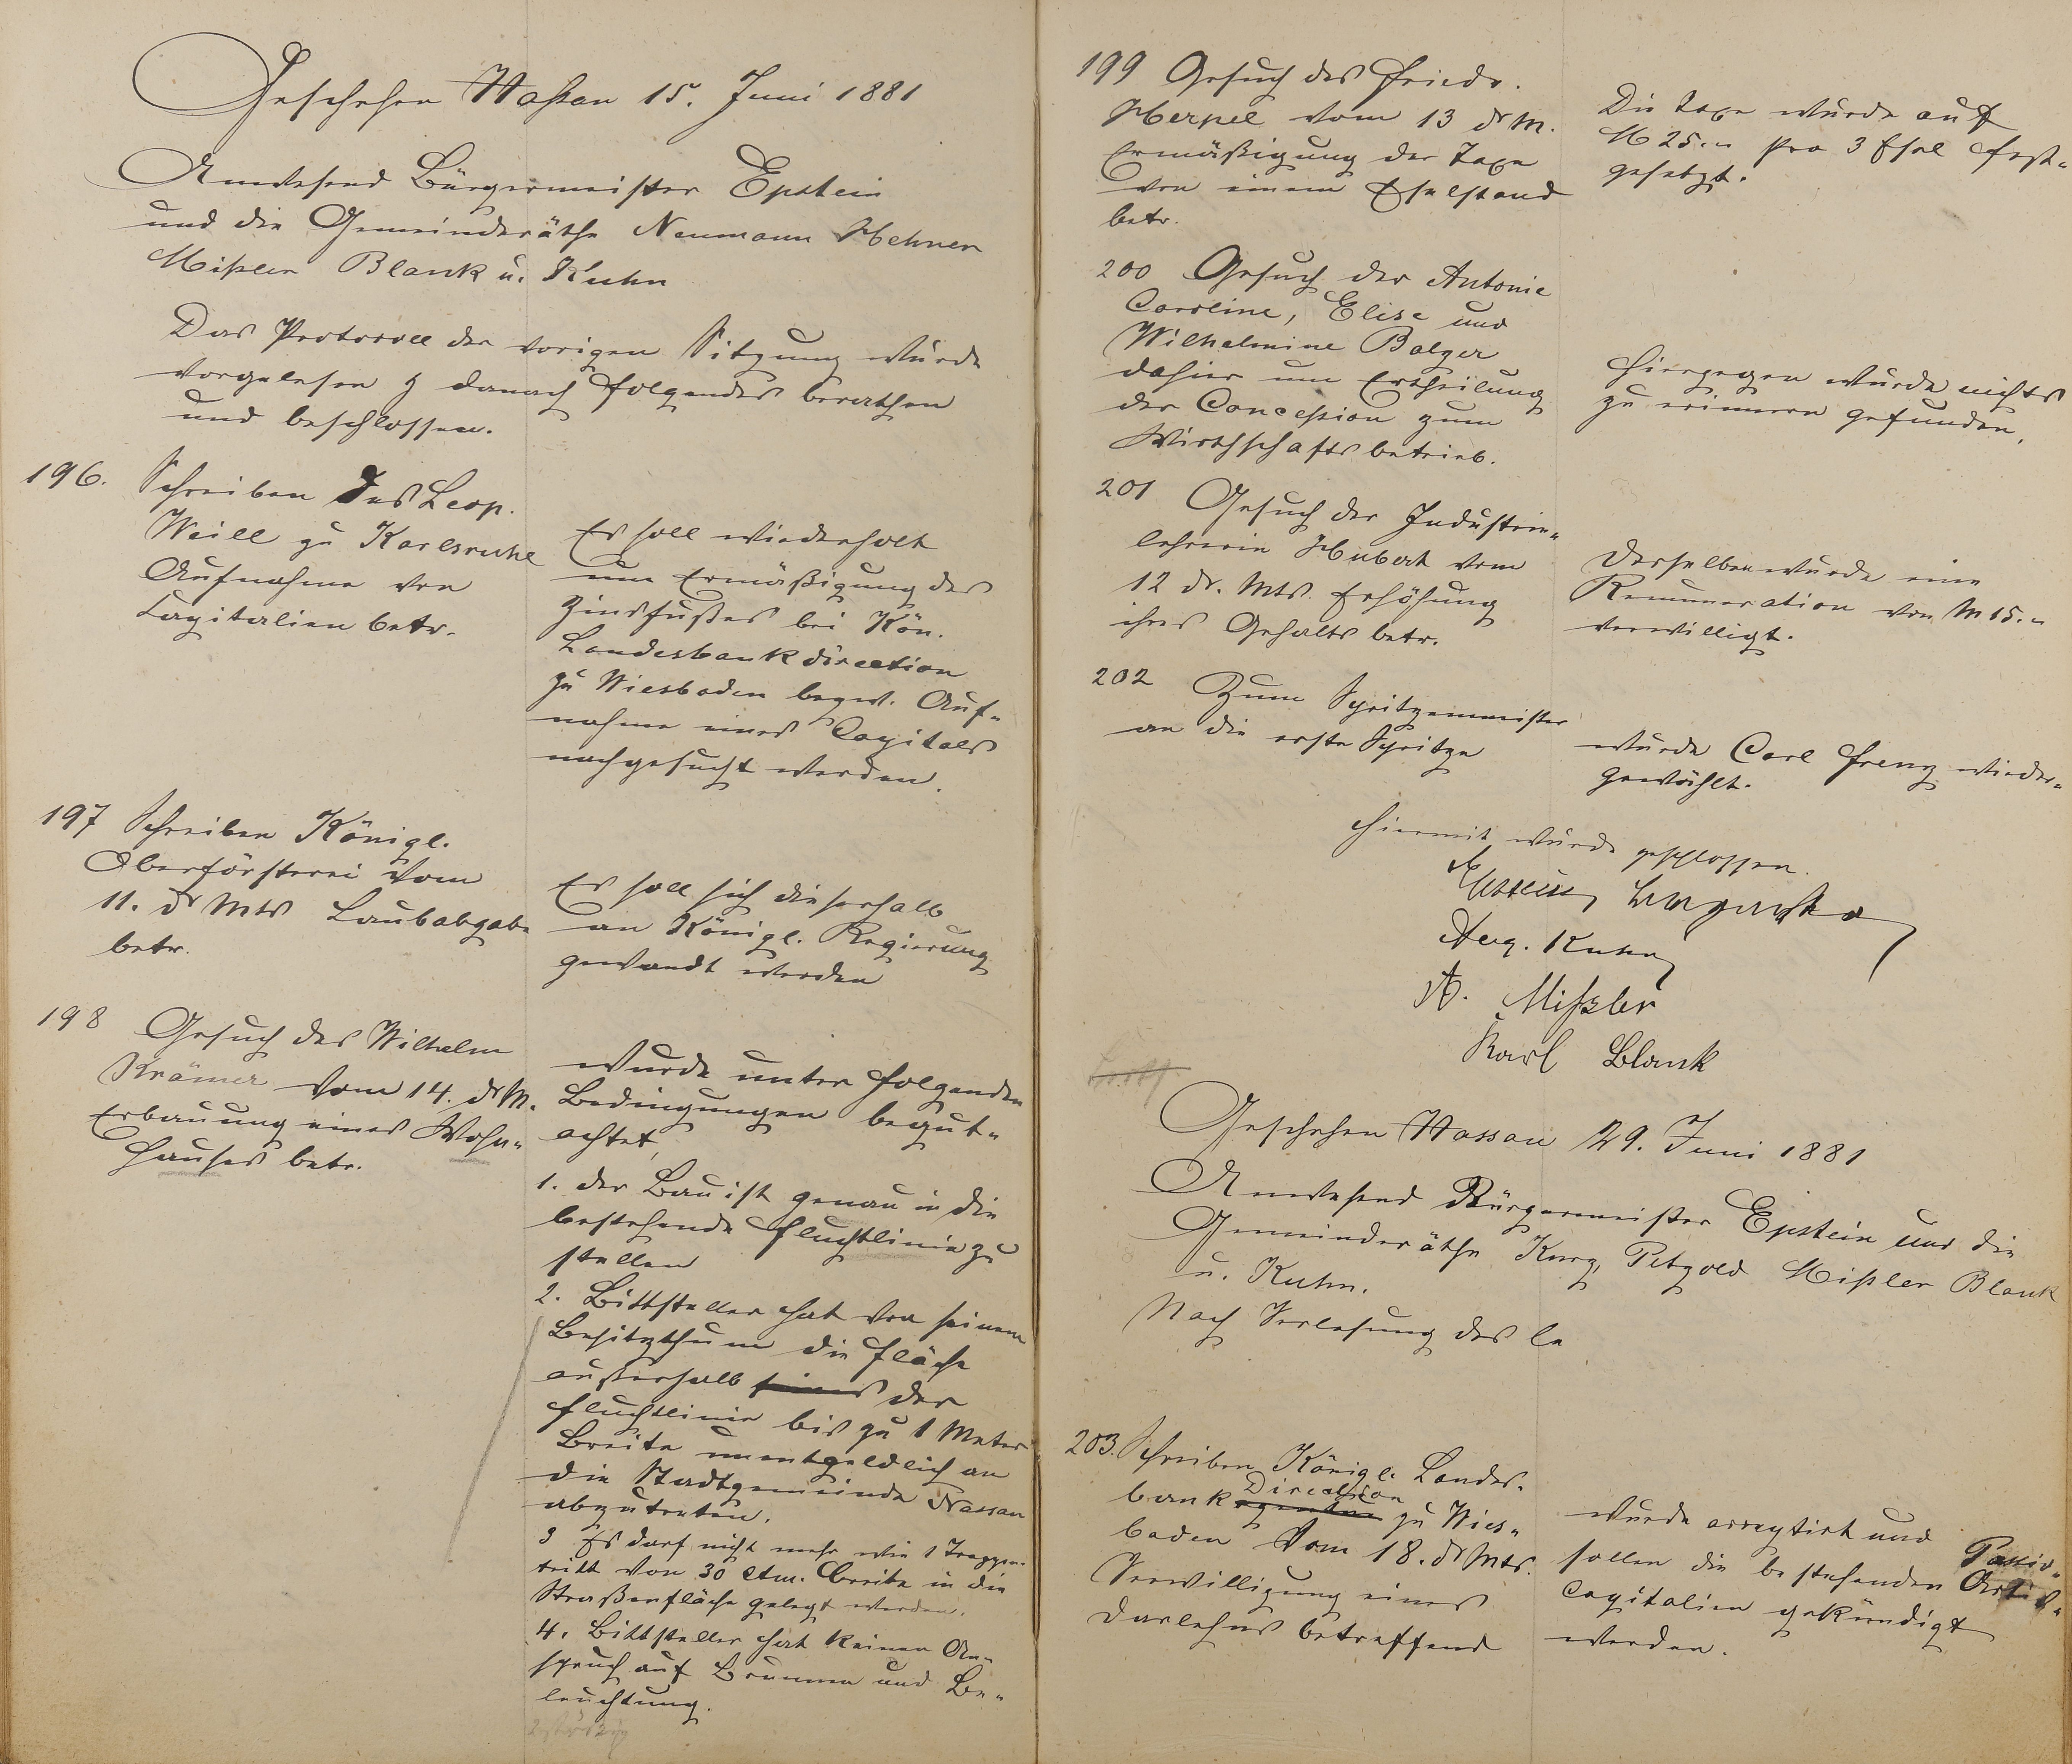 Geschehen Nassau 15. Juni 1881
Anwesend Bürgermeister Epstein
und die Gemeinderäthe Neumann Hehner
Mißler Blank u. Kuhn
Das Protocoll der vorigen Sitzung wurde
vorgelesen & danach folgendes berathen
und beschlossen.
196. Schreiben des Leop.
Weill zu Karlsruhe
Aufnahme von
Capitalien betr.
Es soll wiederholt
um Ermäßigung des
Zinsfußes bei Kön.
Landesbankdirection
zu Wiesbaden bezw. Auf-
nahme eines Capitals
nachgesucht werden.
197 Schreiben Königl.
Oberförsterei vom
11. ds Mts Laubabgabe
betr.
Es soll sich dieserhalb
an Königl. Regierung
gewandt werden
198 Gesuch des Wilhelm
Krämer vom 14. ds M.
Erbauung eines Wohn-
hauses betr.
wurde unter folgenden
Bedingungen begut-
achtet,
1. der Bau ist genau in die
bestehende Fluchtlinie zu
stellen
2. Bittsteller hat von seinem
Besitzthum die Fläche
außerhalb seines der
Fluchtlinie bis zu 1 Meter
Breite unentgeldlich an
die Stadtgemeinde Nassau
abzutreten.
3 Es darf nicht mehr wie 1 Treppen-
tritt von 30 Ctm. Breite in die
Straßenfläche gelegt werden.
4. Bittsteller hat keinen An-
spruch auf Brunnen und Be-
leuchtung.
199 Gesuch des Friedr.
Herpel vom 13 ds M.
Ermäßigung der Taxe
von einem Eselstand
betr.
Die Taxe wurde auf
M 25.- pro 3 Esel fest-
gesetzt.
200 Gesuch der Antonie
Caroline, Elise und
Wilhelmine Balzer
dahier um Ertheilung
der Concession zum
Wirthschaftsbetrieb.
Hiergegen wurde nichts
zu erinnern gefunden.
201 Gesuch der Industrie-
lehrerin Hubert vom
12 ds. Mts. Erhöhung
ihres Gehalts betr.
Derselben wurde eine
Remuneration von M 15.-
verwilligt.
202 Zum Spritzenmeister
an die erste Spritze
wurde Carl Frenz wieder-
gewählt.
Hiermit wurde geschlossen.
Epstein Bürgermstr
Aug. Kuhn
A. Mißler
Karl Blank
Geschehen Nassau 29. Juni 1881
Anwesend Bürgermeister Epstein und die
Gemeinderäthe Kurz, Petzold Mißler Blank
u. Kuhn.
Nach Verlesung des le
203. Schreiben Königl. Landes-
bank Direction zu Wies-
baden vom 18. ds Mts.
Verwilligung eines
Darlehns betreffend
wurde acceptirt und
sollen die bestehenden Passiv-
capitalien gekündigt
werden.